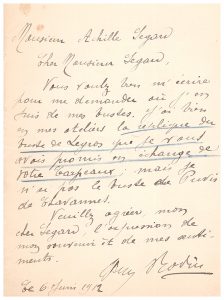 Monsieur Achille Segard
Cher Monsieur Segard,
Vous voulez bien m'écrire
pour me demander où j'en
suis de mes bustes. J'ai bien
en mes ateliers la réplique du
buste de Legros que je vous
avais promis en échange de
votre Carpeaux; mais je
n'ai pas le buste de Puvis
de Chavannes.
Veuillez agréer, mon
cher Segard, l'expression de
mon souvenir et de mes senti-
ments.
Rodin
Le 6 Juin 1912